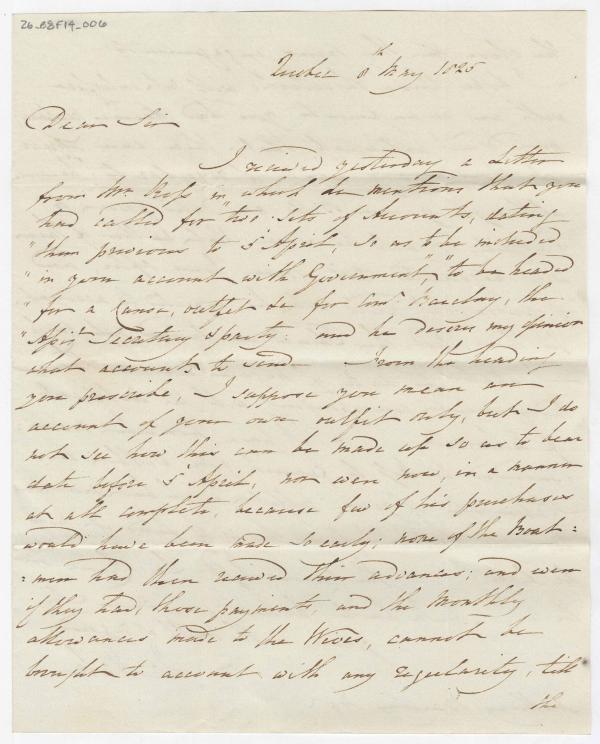 26_B3F14_006
Quebec 8th May 1825
Dear Sir
I received yesterday a Letter
from Mr. Ross in which he mentions that you
had called for "two sets of Accounts, dating
"them previous to 5th April, so as to be included
"in your account with Government", "to be headed
"for a Canoe, outfit &c for Comr. Barclay, the
"Assist Secretary & party: and he desires my opinion
what accounts to send. From the heading
you prescribe, I suppose you mean an
account of your own outfit only, but I do
not see how this can be made up so as to bear
date before 5th April, nor even now, in a manner
at all complete, because few of his purchases
would have been made so early; none of the Boat=
=men had then received their advances; and even
if they had, those payments, and the Monthly
allowances made to the Wives, cannot be
brought to account with any regularity, till
the